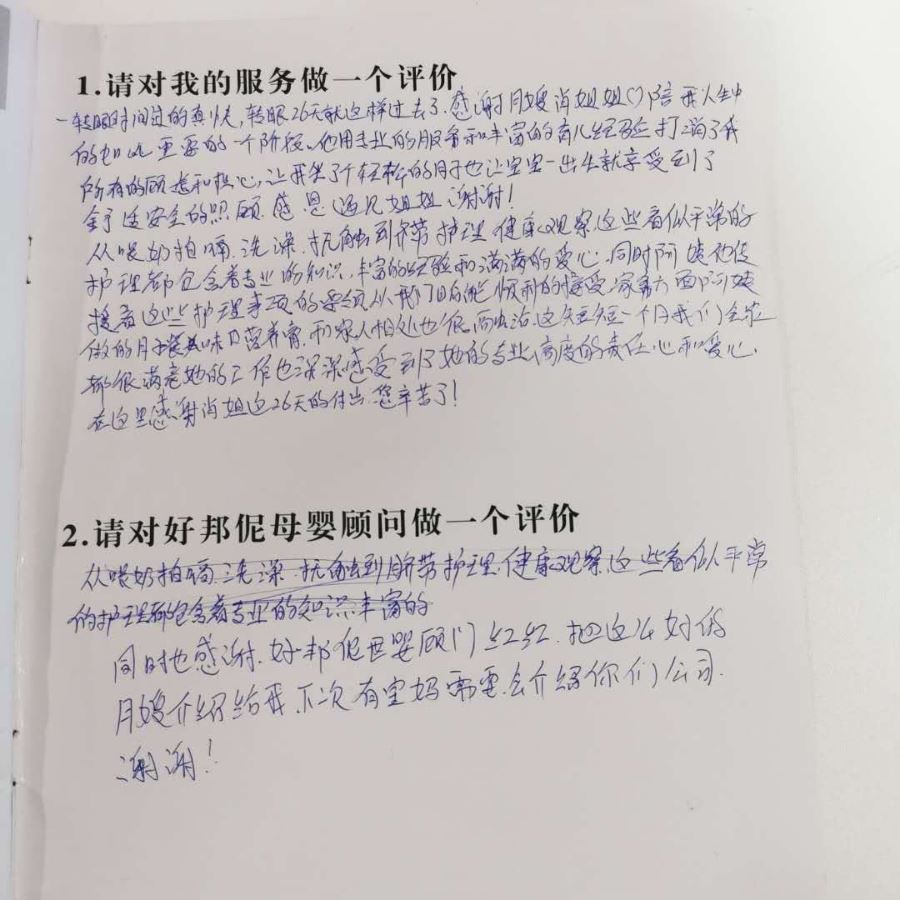 1.请对我的服务做一个评价
一转眼时间过的真快,转眼26天就这样过去了.感谢月嫂肖姐姐陪我人生中
的如此重要的一个阶段.他用专业的服务和丰富的育儿经验打消了我
所有的顾虑和担心,让我坐了个轻松的月子也让宝宝一出生就享受到了
舒适安全的照顾.感恩遇见姐姐 谢谢!
从喂奶拍嗝.洗澡.抚触到脐带护理 健康观察这些看似平常的
护理都包含着专业的知识,丰富的经验和满满的爱心.同时阿姨他使
接着这些护理事项的 从我们 顺利的接受.家务方面阿姨
做的月子餐美味口营养膏,和家人相处也很融洽.这短短一个月我们全家
都很满意她的工作也深深感受到了她的专业,高度的责任心和爱心.
在这里感谢肖姐这26天的付出.您辛苦了!
2.请对好邦伲母婴顾问做一个评价
从喂奶拍嗝.洗澡.抚触到脐带护理.健康观察这些看似平常
的护理都包含着专业的知识丰富的
同时也感谢.好邦伲母婴顾问红红.把这么好的
月嫂介绍给我.下次有宝妈需要.会介绍你们公司.
谢谢!